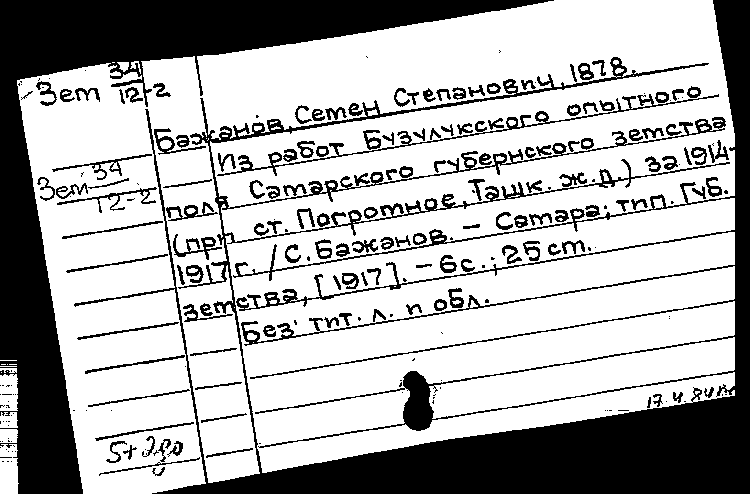 Зем 34/12-2
Бажанов, Семен Степанович, 1878.
Из работ Бузулукского опытного
Зем 34/12-2
поля Самарского губернского земства
(при ст. Погромное, Ташк. ж.д.) за 1914-
1917 г. / С. Бажанов. – Самара; тип. Губ.
земства, [1917]. – 6 с.; 25 см.
Без тит. л. и обл.
17.4.84